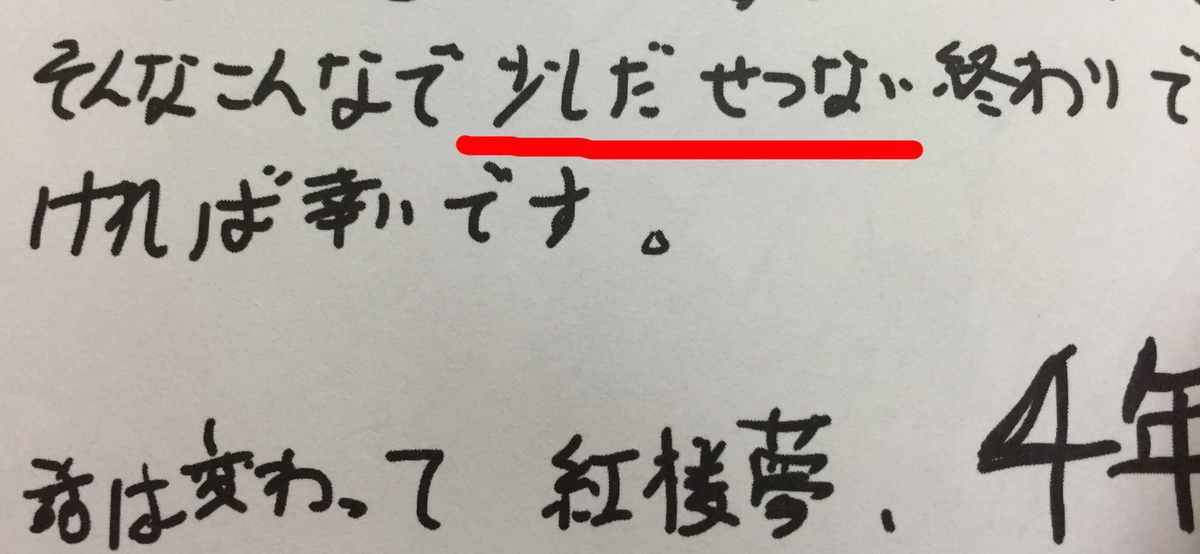 そんなこんなで 少しだ せつない 終わりで
ければ幸いです。
話は変わって 紅楼夢、4年